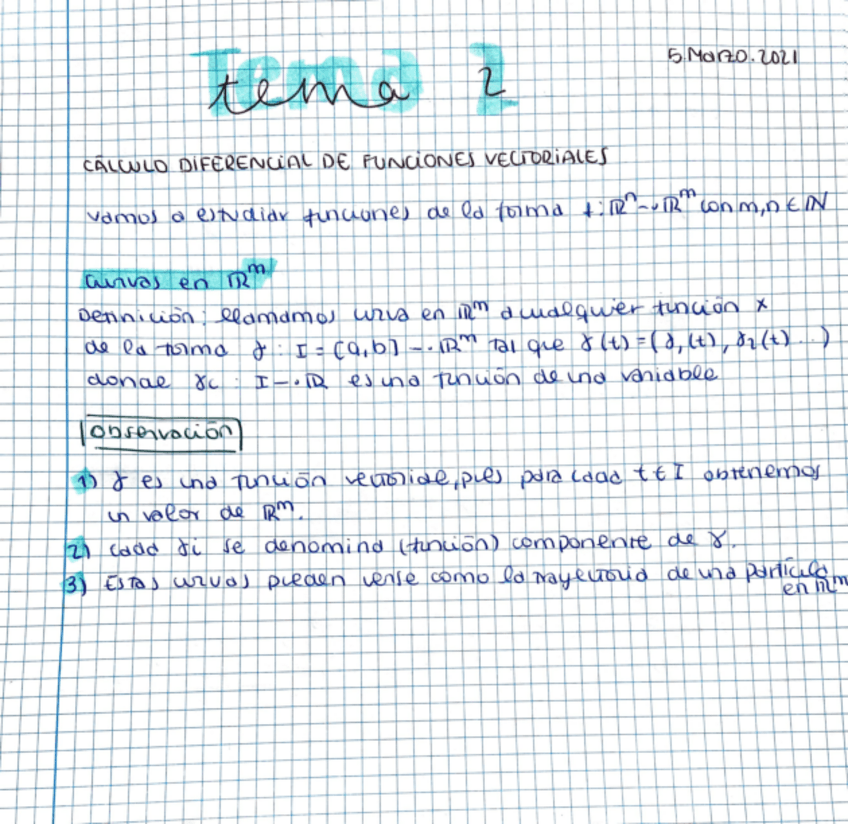 5.Marzo.2021
tema 2
CÁLCULO DIFERENCIAL DE FUNCIONES VECTORIALES
vamos a estudiar funciones de la forma f: ℝⁿ → ℝᵐ con m,n ∈ ℕ
curvas en ℝᵐ
Definición: llamamos curva en ℝᵐ a cualquier función x
de la forma γ : I = [a,b] → ℝᵐ tal que γ(t) = (γ₁(t), γ₂(t)...)
donde γi : I → ℝ es una función de una variable
Observación
1) γ es una función vectorial, pues para cada t ∈ I obtenemos
un valor de ℝᵐ.
2) cada γi se denomina (función) componente de γ.
3) Estas curvas pueden verse como la trayectoria de una partícula
en ℝᵐ